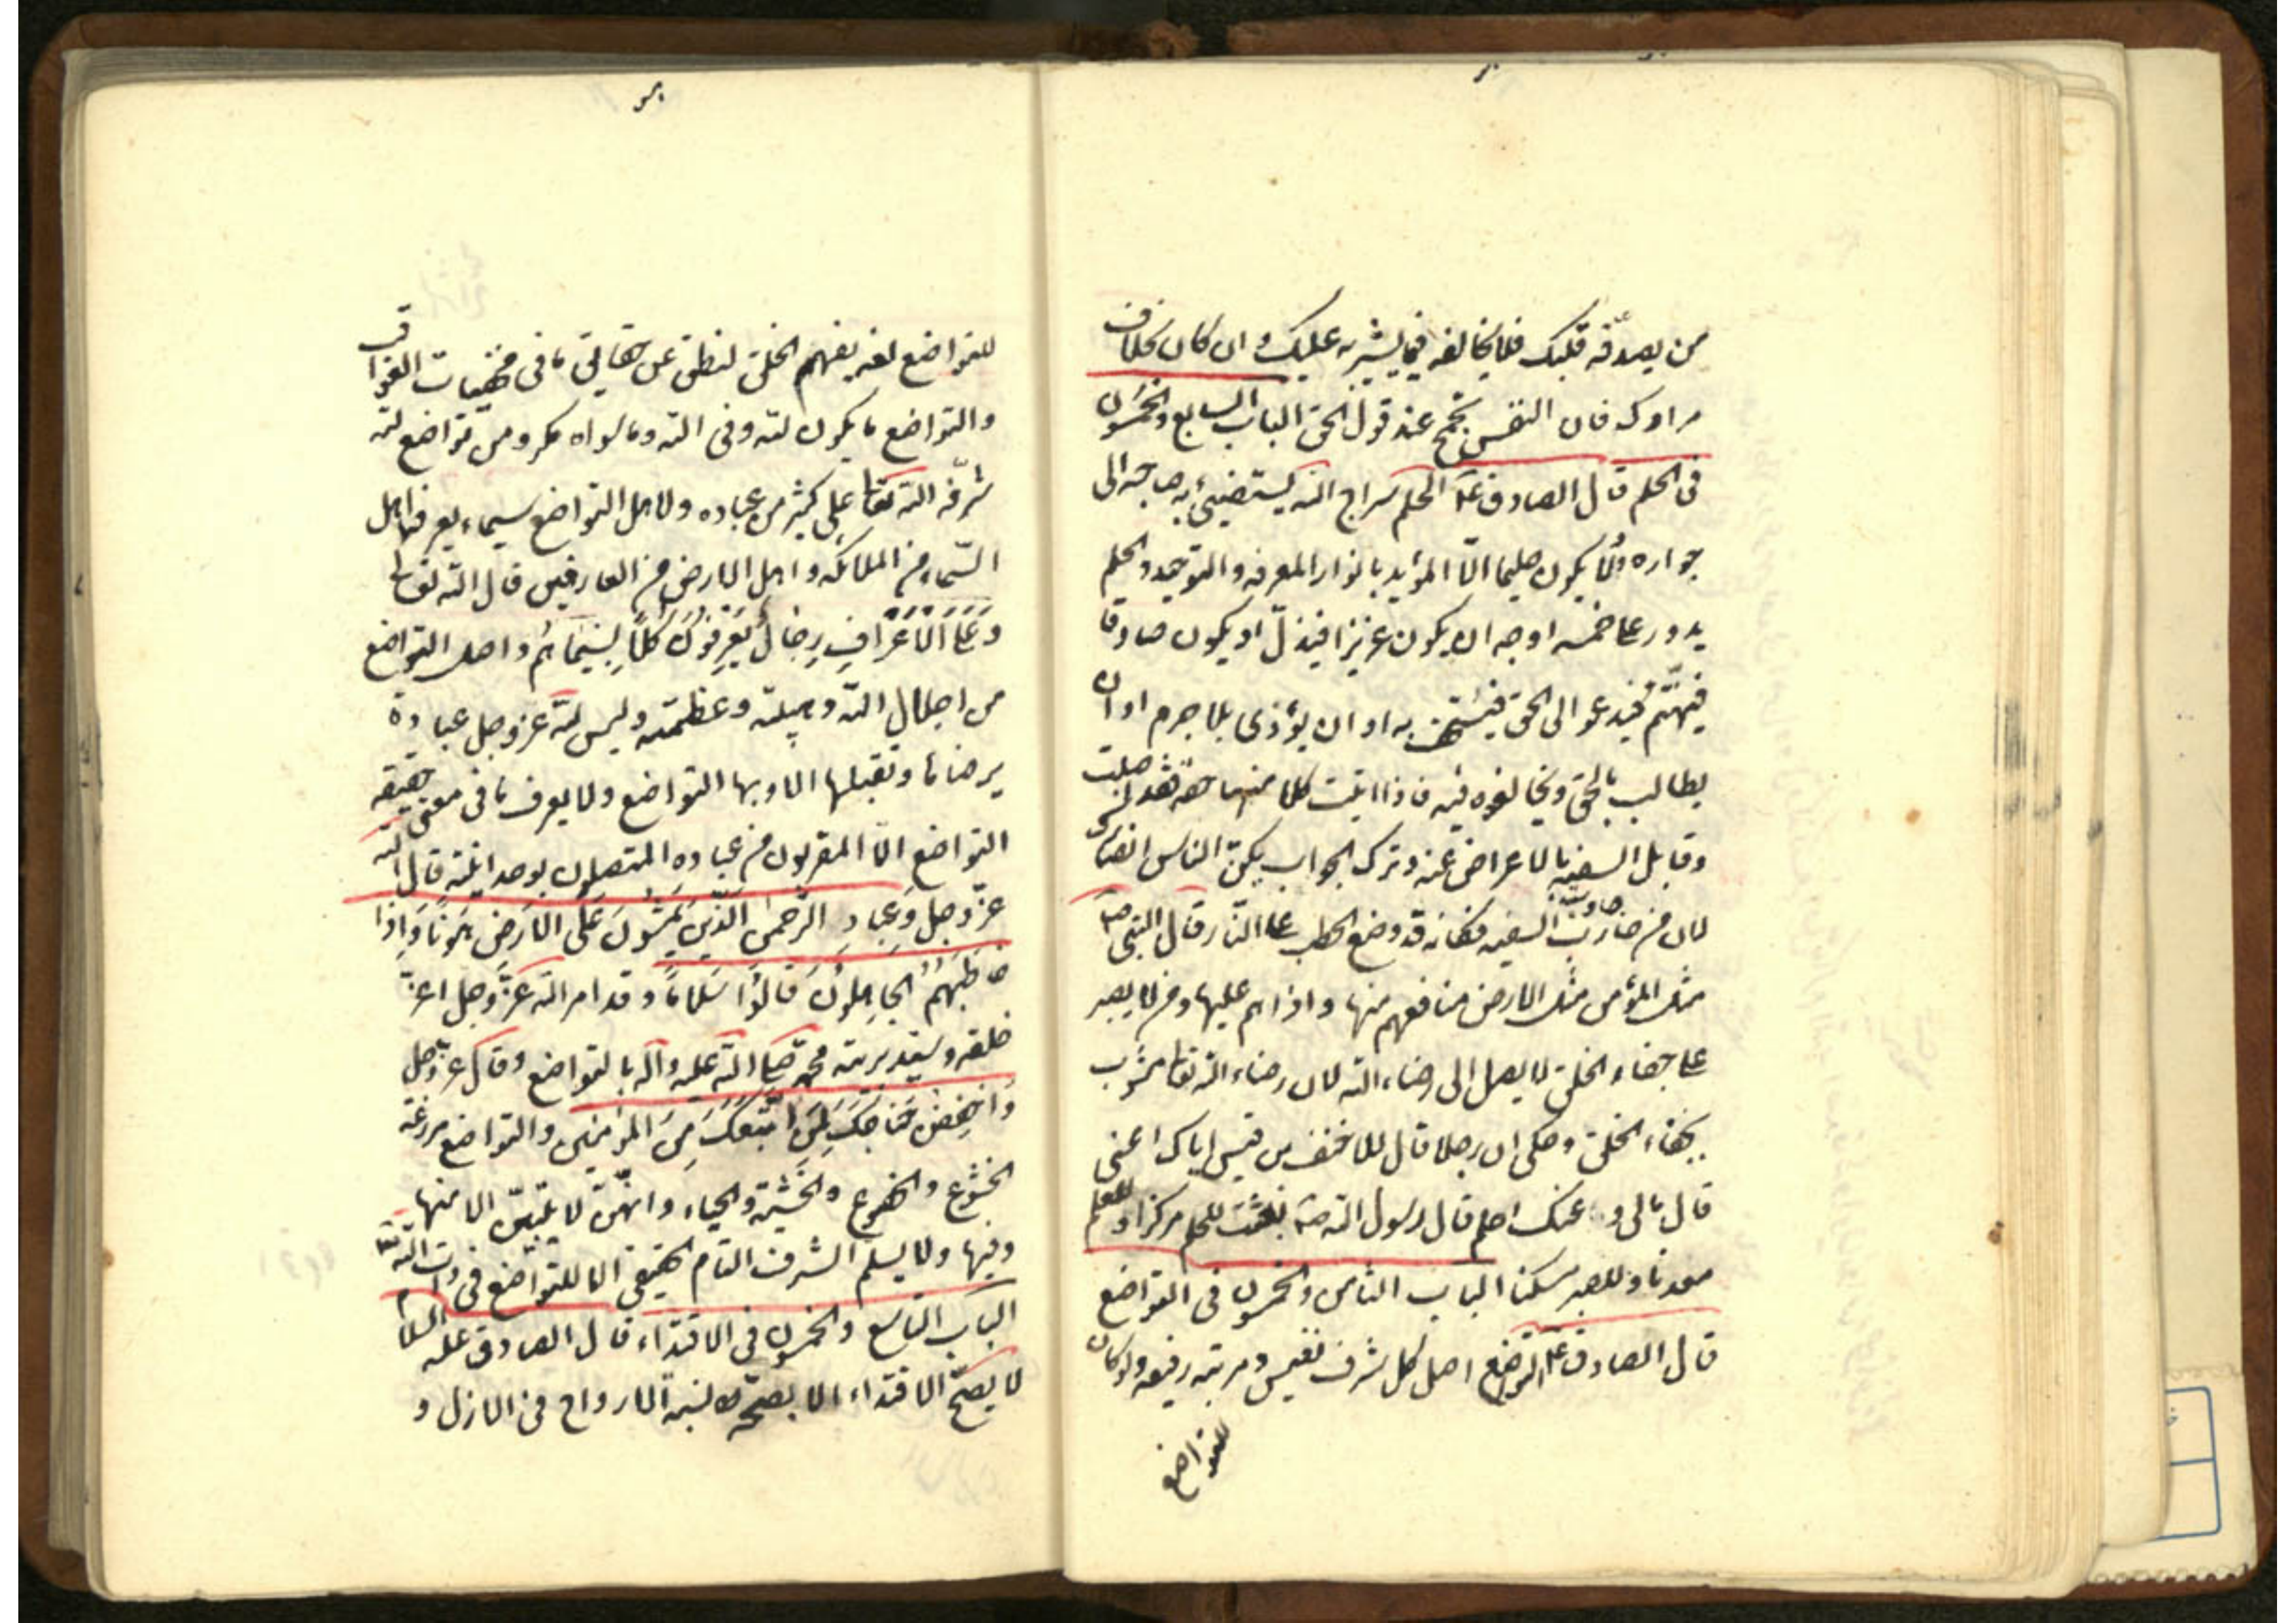 من يصدّقه قلبك فلا تخالفه فيما يشير به عليك وان كان بخلاف
مرادك فان النفس تجمح عند قول الحق الباب السابع والخمسون
فى الحلم قال الصادق ع الحلم سراج الله يستضيئ به صاحبه الى
جواره ولا يكون حليما الّا المؤيد بانوار المعرفه والتوحيد والحلم
يدور على خمسه اوجه ان يكون عزيزا فيذلّ او يكون صادقا
فيتّهم او يدعو الى الحق فيستخف به او ان يؤذى بلا جرم او ان
يطالب بالحق ويخالفوه فيه فاذا اتيت كلا منها حقه فقد اصبت
وقابل السفيه بالاعراض عنه وترك الجواب يكن الناس انصارك
لان من حارب السفيه فكانه قد وضع الحطب على النّار قال النبى ص
مثل المؤمن مثل الارض منافعهم منها واذاهم عليها ومن لا يصبر
على جفاء الخلق لا يصل الى رضاء الله لان رضاء الله تعالى مشوب
بجفاء الخلق وحكى ان رجلا قال للاحنف بن قيس اياك اعنى
قال وعنك احلم قال رسول الله ص بعثت للحلم مركزا وللعلم
معدنا وللصبر مسكنا الباب الثامن والخمسون فى التواضع
قال الصادق ع التواضع اصل كل شرف نفيس ومرتبه رفيعه ولو كان
للتواضع
للتواضع لغه يفهمها الخلق لنطق عن حقايق ما فى مخفيات العواقب
والتواضع ما يكون لله وفى الله وما سواه مكر ومن تواضع لله
شرّفه الله تعالى على كثير من عباده ولاهل التواضع سيماء يعرفها اهل
السّماء من الملائكه واهل الارض من العارفين قال الله تعالى
وَعَلَى الْاَعْرَافِ رِجَالٌ يَعْرِفُونَ كُلًّا بِسِيمَاهُمْ واصل التواضع
من اجلال الله وهيبته وعظمته وليس لله عز وجل عبادة
يرضاها وتقبلها الا وبها التواضع ولا يعرف ما فى معنى حقيقه
التواضع الّا المقربون من عباده المتصلون بوحدانيته قال الله
عزّ وجل وَعِباد الرَّحمنِ الَّذينَ يَمْشُونَ عَلَى الاَرضِ هَوْناً وَاِذا
خاطَبَهُمُ الجاهِلُونَ قالُوا سَلاماً وقد امر الله عزّ وجل اعزّ
خلقه وسيّد بريته محمّد صلى الله عليه واله بالتواضع وقال عز وجل
وَاخْفِضْ جَناحَكَ لِمَنِ اتَّبَعَكَ مِنَ المُؤمِنينَ والتواضع مزرعة
الخشوع والخضوع والخشية والحياء وانهنّ لا ينبتن الا منها
وفيها ولا يسلم الشرف التام الحقيقى الا للتواضع فى ذات الله تعالى
الباب التاسع والخمسون فى الاقتداء قال الصادق عليه السلام
لا يصحّ الاقتداء الا بصحّة نسبة الارواح فى الازل و